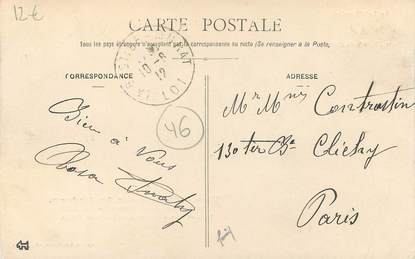 12€
CARTE POSTALE
Tous les pays étrangers n'acceptent pas la correspondance au recto (Se renseigner à la Poste)
CORRESPONDANCE
ADRESSE
LOT
46
Bien à Vous
Mr Mme Contrastin
130 ter Bd Clichy
Paris